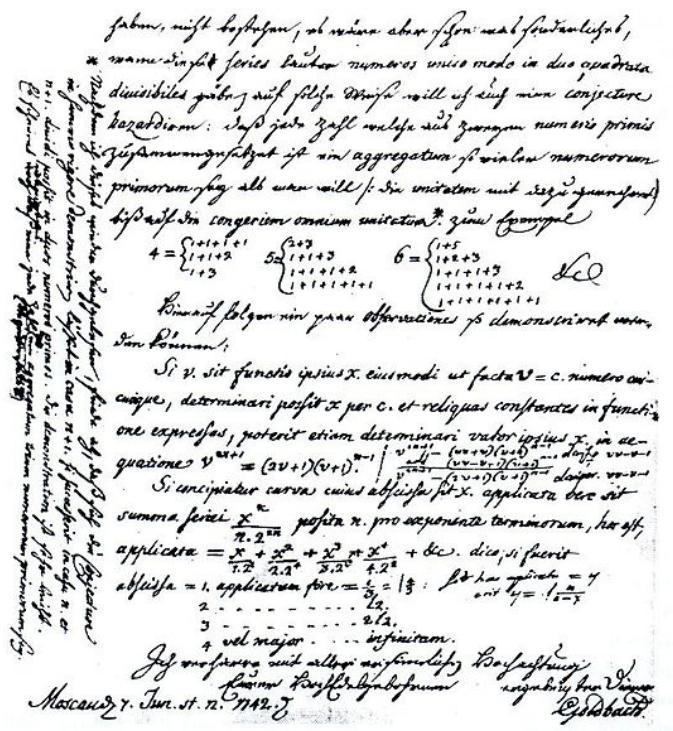 haben, nicht bestehen, es wäre aber schon was sonderliches,
wann diese series lauter numeros unico modo in duo quadrata
divisibiles gäbe; auf solche Weise will ich auch eine conjecture
hazardiren: daß jede Zahl welche aus zweyen numeris primis
zusammengesetzet ist ein aggregatum so vieler numerorum
primorum sey als man will /: die unitatem mit dazu gerechnet)
biß auf die congeriem omnium unitatum*. zum Exempel
4 = { 1+1+1+1 / 1+1+2 / 1+3
5 = { 2+3 / 1+1+3 / 1+1+1+2 / 1+1+1+1+1
6 = { 1+5 / 1+2+3 / 1+1+1+3 / 1+1+1+1+2 / 1+1+1+1+1+1
&c
Hierauf folgen ein paar observationes so demonstriret wer-
den können:
Si v. sit functio ipsius x. eiusmodi ut facta v = c. numero cui-
cunque, determinari possit x per c. et reliquas constantes in functi-
one expressas, poterit etiam determinari valor ipsius x. in ae-
quatione v^{2n+1} = (2v+1)(v+1)^{n-1}
Si concipiatur curva cuius abscissa sit x. applicata vero sit
summa seriei x^n / n.2^{2n} posita n. pro exponente terminorum, hoc est,
applicata = x/1.2² + x²/2.2⁴ + x³/3.2⁶ + x⁴/4.2⁸ + &c. dico, si fuerit
abscissa = 1. applicatam fore = l4/3
2 . . . . . . . . l2.
3 . . . . . . . . 2l2.
4 vel major . . . . infinitam.
Ich verharre mit aller ersinnlichen Hochachtung
Eurer HochEdelgebohrnen ergebenster Diener
Moscau d. 7. Jun. st. n. 1742. Goldbach.
* Nachdem ich dieses wieder durchgelesen, finde ich daß sich die conjecture
in summo rigore demonstriren läßet in casu n+1. si successerit in casu n. et
n+1. dividi possit in duos numeros primos. Die demonstration ist sehr leicht.
Es scheinet wenigstens, daß eine jede Zahl aggregatum trium numerorum primorum sey.